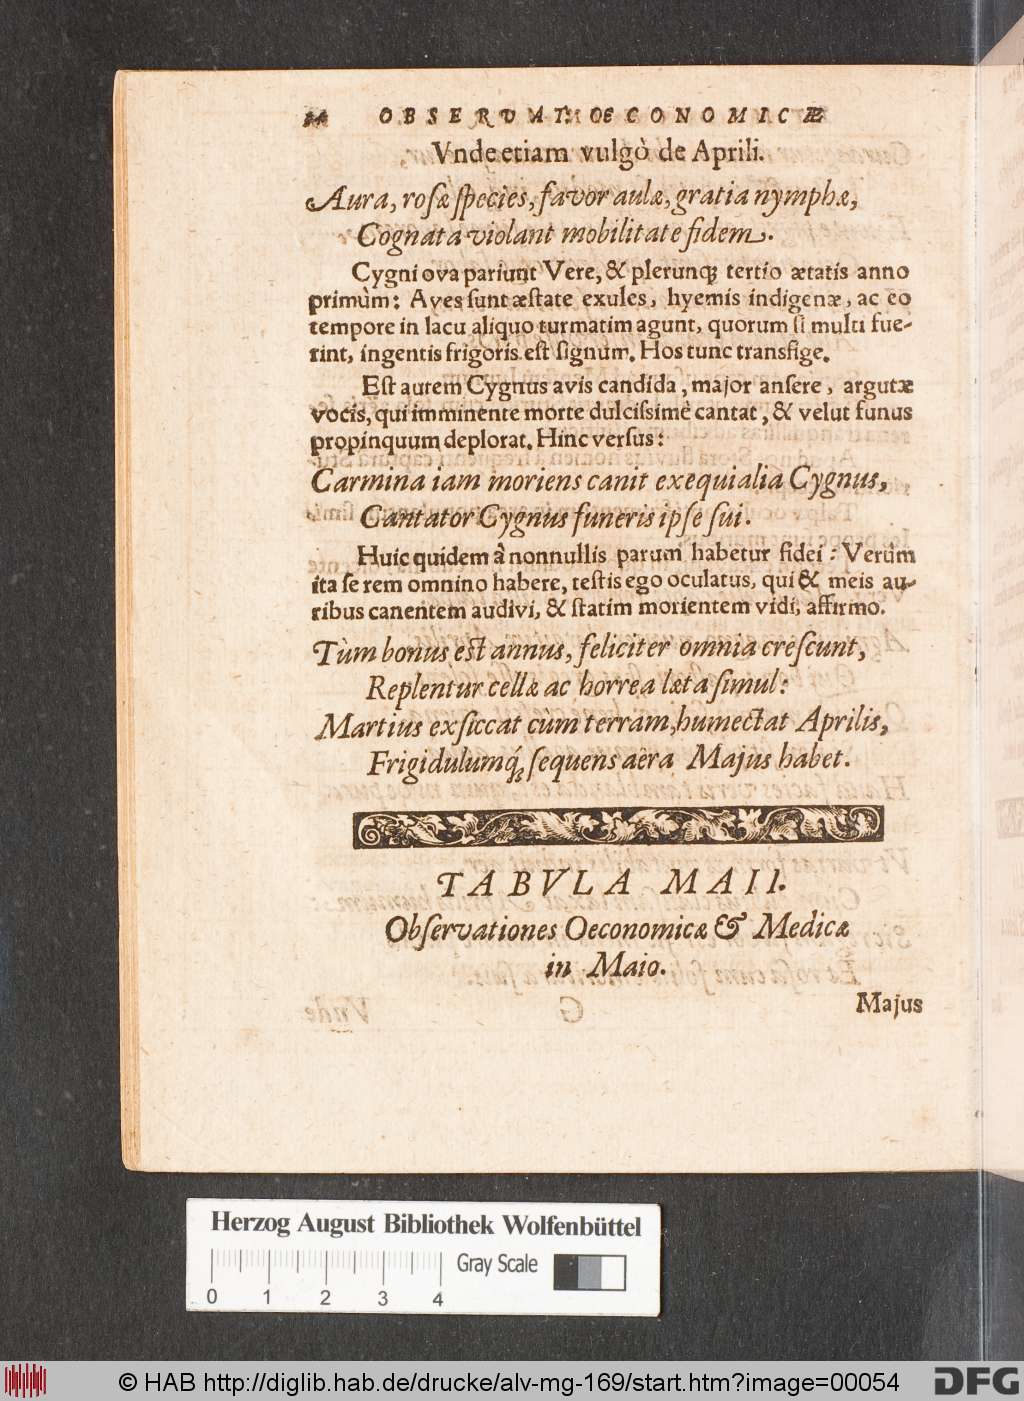 OBSERVAT. OECONOMICÆ
Vnde etiam vulgò de Aprili.
Aura, rosæ species, favor aulæ, gratia nymphæ,
Cognata violant mobilitate fidem.
Cygni ova pariunt Vere, & plerunq; tertio ætatis anno
primùm: Aves sunt æstate exules, hyemis indigenæ, ac eo
tempore in lacu aliquo turmatim agunt, quorum si multi fue-
rint, ingentis frigoris est signum. Hos tunc transfige.
Est autem Cygnus avis candida, major ansere, argutæ
vocis, qui imminente morte dulcissimè cantat, & velut funus
propinquum deplorat. Hinc versus:
Carmina iam moriens canit exequialia Cygnus,
Cantator Cygnus funeris ipse sui.
Huic quidem à nonnullis parum habetur fidei: Verùm
ita se rem omnino habere, testis ego oculatus, qui & meis au-
ribus canentem audivi, & statim morientem vidi, affirmo.
Tùm bonus est annus, feliciter omnia crescunt,
Replentur cellæ ac horrea læta simul:
Martius exsiccat cùm terram, humectat Aprilis,
Frigidulumq́; sequens aëra Majus habet.
TABVLA MAII.
Observationes Oeconomicæ & Medicæ
in Maio.
Majus
Herzog August Bibliothek Wolfenbüttel
Gray Scale
0 1 2 3 4
© HAB http://diglib.hab.de/drucke/alv-mg-169/start.htm?image=00054
DFG